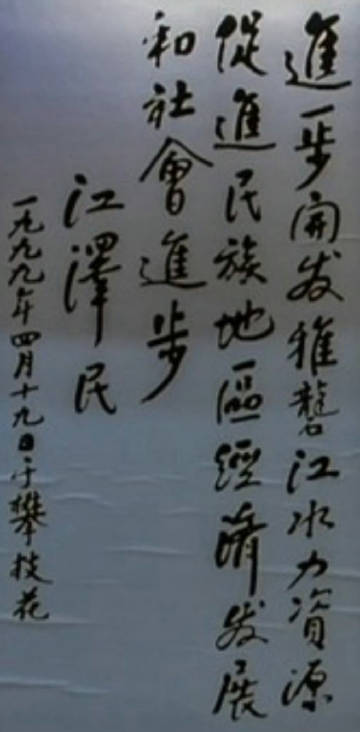 進一步開发雅礱江水力資源
促進民族地區經濟发展
和社會進步
江澤民
一九九九年四月十九日于攀枝花